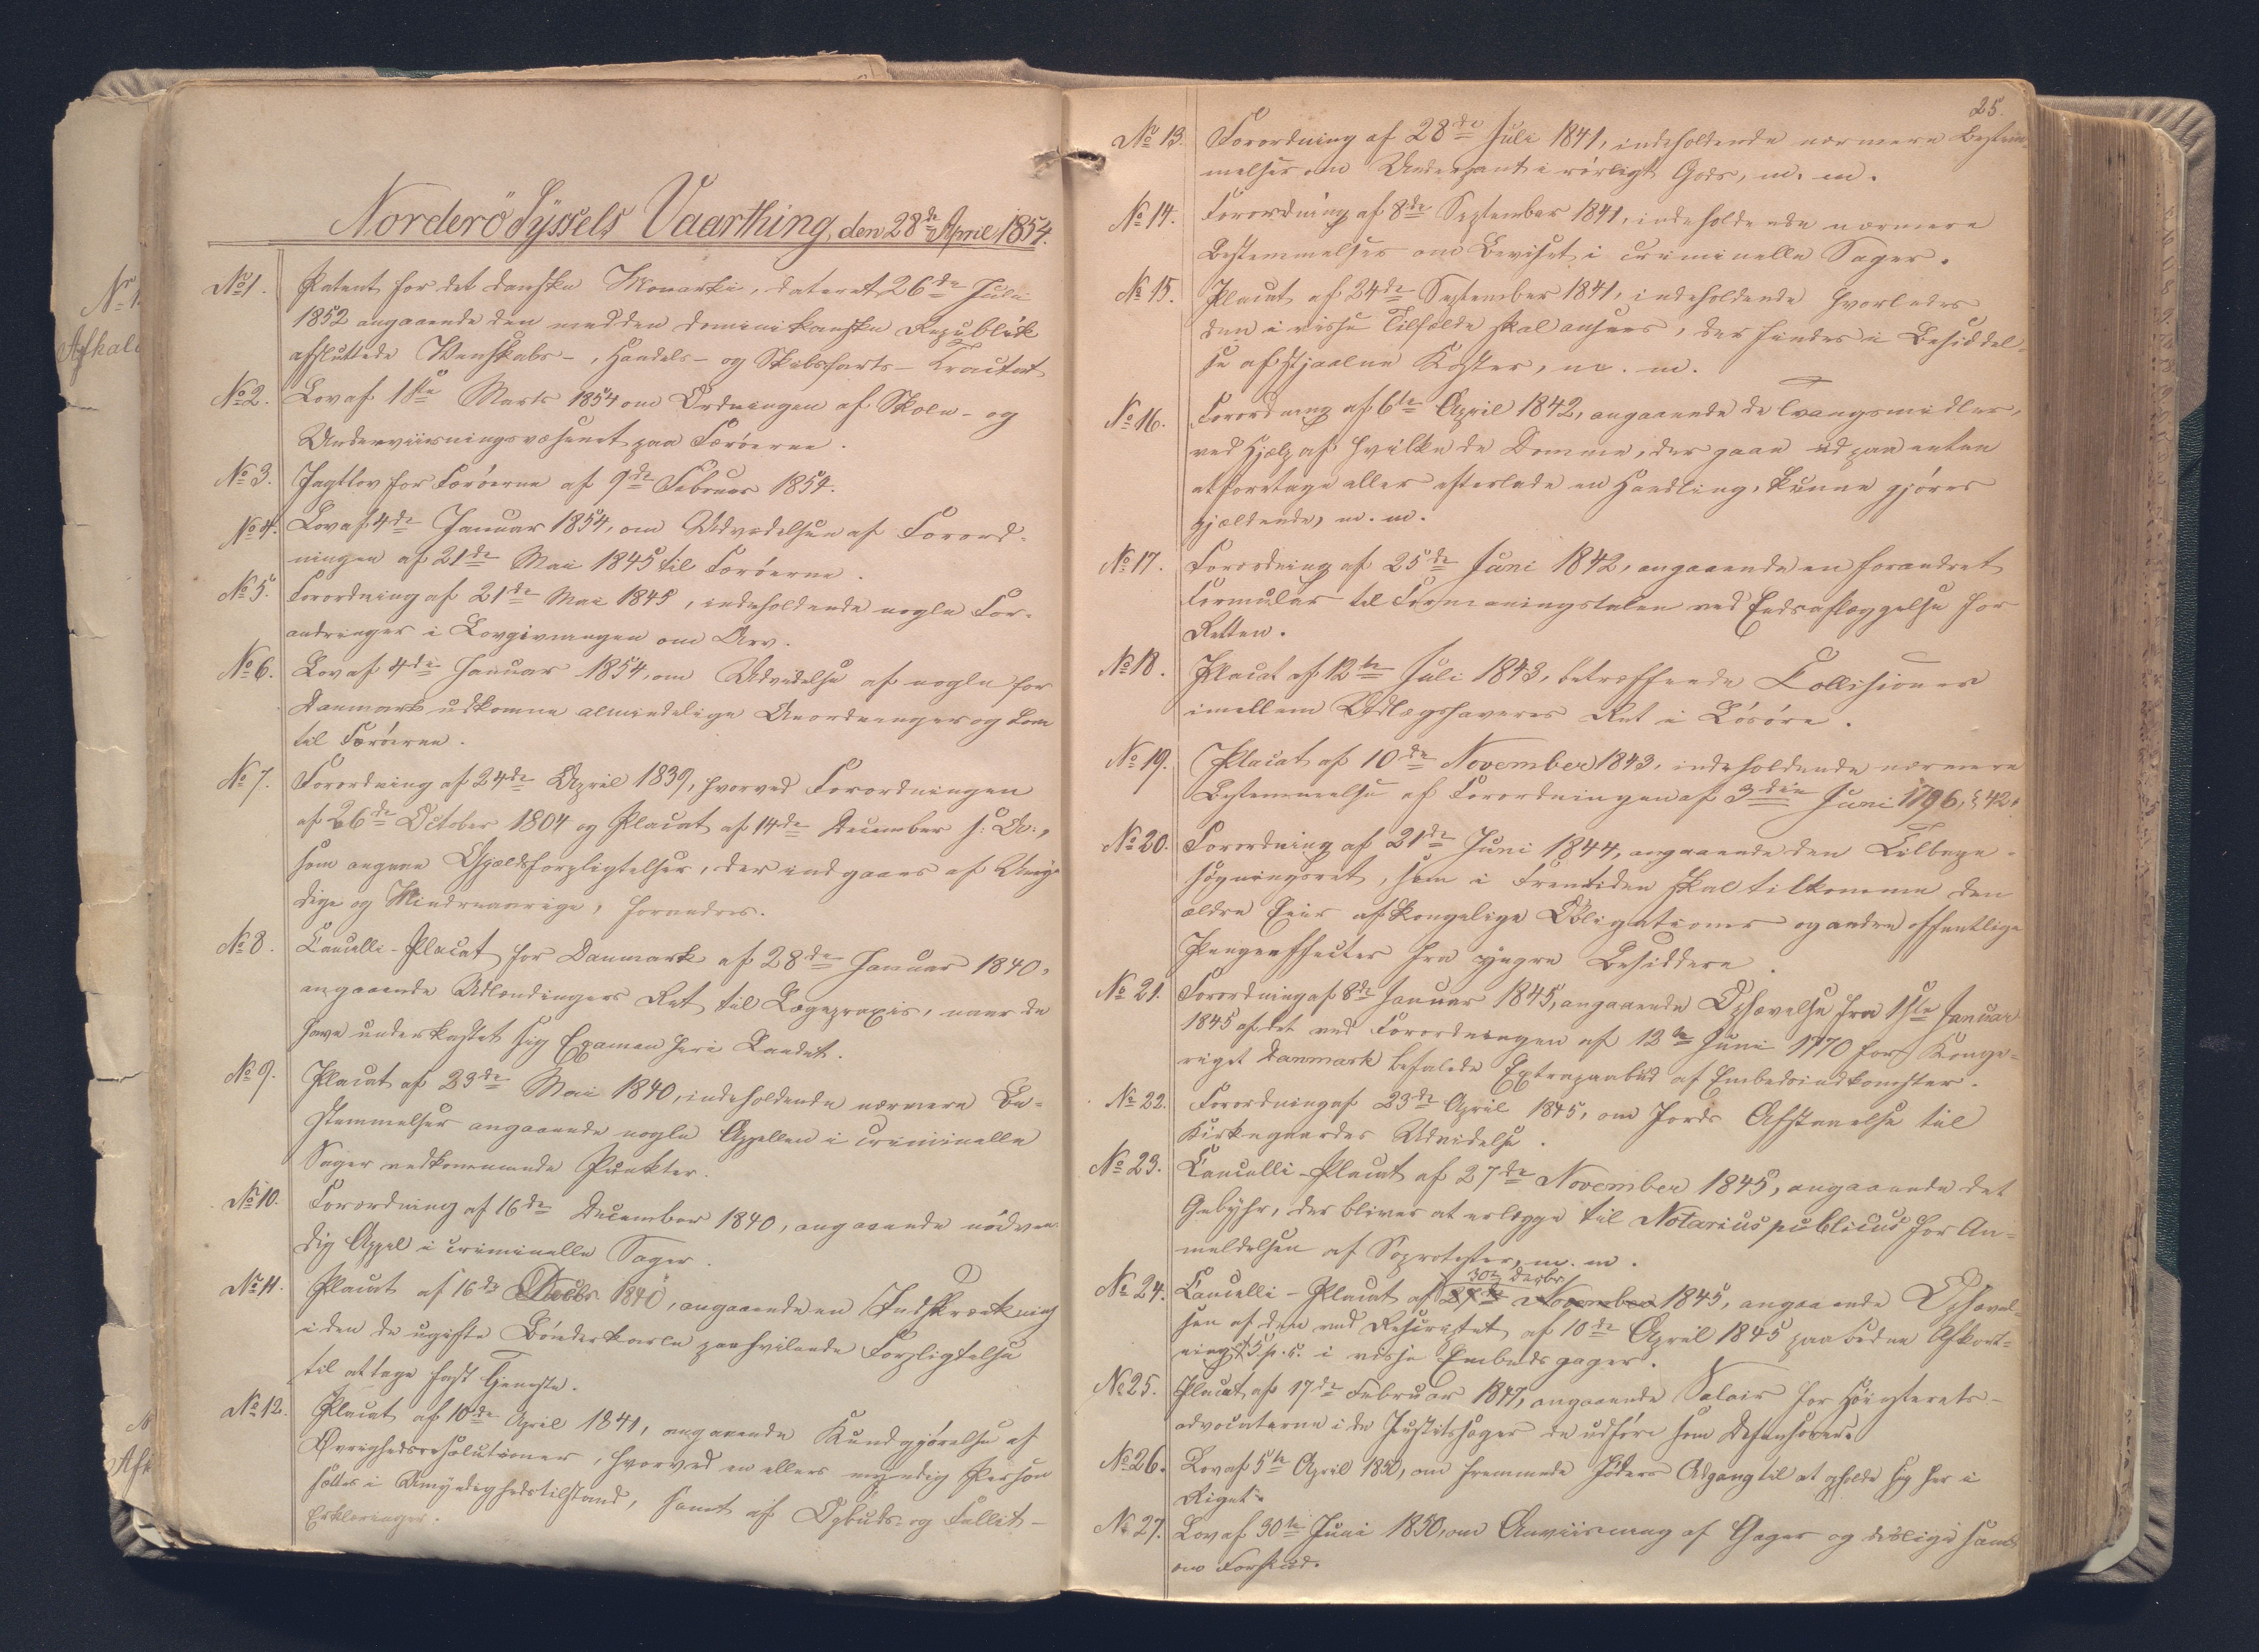 Norderö Syssels Vaarthing, den 28de April 1854.
No 1. Patent for det danske Monarki, dateret 26de Juli
1852 angaaende den med den dominikanske Republik
afsluttede Venskabs-, Handels- og Skibsfarts-Tractat
No 2. Lov af 1ste Marts 1854 om Ordningen af Skole- og
Underviisningsvæsenet paa Færöerne.
No 3. Jagtlov for Færöerne af 9de Februar 1854.
No 4. Lov af 4de Januar 1854, om Udvidelsen af Forord-
ningen af 21de Mai 1845 til Færöerne.
No 5. Forordning af 21de Mai 1845, indeholdende nogle For-
andringer i Lovgivningen om Arv.
No 6. Lov af 4de Januar 1854, om Udvidelse af nogle for
Danmark udkomne almindelige Anordninger og Love
til Færöerne.
No 7. Forordning af 24de April 1839, hvorved Forordningen
af 26de October 1804 og Placat af 14de December s: A:,
som angaae Gjældsforpligtelser, der indgaaes af Umyn-
dige og Mindreaarige, forandres.
No 8. Cancelli-Placat for Danmark af 28de Januar 1840,
angaaende Udlændingers Ret til Lægepraxis, naar de
have underkastet sig Examen heri Landet.
No 9. Placat af 23de Mai 1840, indeholdende nærmere Be-
stemmelser angaaende nogle Appellen i criminelle
Sager vedkommende Punkter.
No 10. Forordning af 16de December 1840, angaaende nödven-
dig Appel i criminelle Sager.
No 11. Placat af 16de Decbr 1840, angaaende en Indskrænkning
i den de ugifte Bönderkarle paahvilende Forpligtelse
til at tage fast Tjeneste.
No 12. Placat af 10de April 1841, angaaende Kundgjörelse af
Øvrighedsresolutioner, hvorved en ellers myndig Person
sættes i Umyndighedstilstand, samt af Opbuds- og Fallit-
Erklæringer.
25.
No 13. Forordning af 28de Juli 1841, indeholdende nærmere Bestem-
melser om Underpant i rörligt Gods, m. m.
No 14. Forordning af 8de September 1841, indeholdende nærmere
Bestemmelser om Beviset i criminelle Sager.
No 15. Placat af 24de September 1841, indeholdende hvorledes
den i visse Tilfælde skal ansees, der findes i Besiddel-
se af stjaalne Koster, m. m.
No 16. Forordning af 6te April 1842, angaaende de Tvangsmidler,
ved Hjælp af hvilke de Domme, der gaae ud paa enten
at foretage eller efterlade en Handling, kunne gjöres
gjældende, m. m.
No 17. Forordning af 25de Juni 1842, angaaende en forandret
Formular til Formaningstalen ved Eedsaflæggelse for
Retten.
No 18. Placat af 12te Juli 1843, betræffende Collisioner
imellem Udlægshaveres Ret i Lösöre.
No 19. Placat af 10de November 1843, indeholdende nærmere
Bestemmelse af Forordningen af 3die Juni 1796, § 42.
No 20. Forordning af 21de Juni 1844, angaaende den Tilbage-
sögningsret, som i Fremtiden skal tilkomme den
ældre Eier af kongelige Obligationer og andre offentlige
Pengeeffecter fra yngre Besiddere.
No 21. Forordning af 8de Januar 1845, angaaende Ophævelse fra 1ste Januar
1845 af det ved Forordningen af 13de Juni 1770 for Konge-
riget Danmark befalede Extrapaabud af Embedsindkomster.
No 22. Forordning af 23de April 1845, om Jords Afstaaelse til
Kirkegaardes Udvidelse.
No 23. Cancelli-Placat af 27de November 1845, angaaende det
Gebyhr, der bliver at erlægge til Notarius publicus for An-
meldelsen af Soprotester, m. m.
30te Decbr
No 24. Cancelli-Placat af 27de November 1845, angaaende Ophævel-
sen af den ved Rescriptet af 10de April 1845 paabudne Afkort-
ning 5 p. C. i visse Embedsgager.
No 25. Placat af 17de Februar 1847, angaaende Salair for Höiesterets-
advocaterne i de Justitssager de udföre som Defensorer.
No 26. Lov af 5te April 1850, om fremmede Jöders Adgang til at opholde sig her i
Riget.
No 27. Lov af 30te Juni 1850, om Anviisning af Gager og deslige samt
om Forskud.